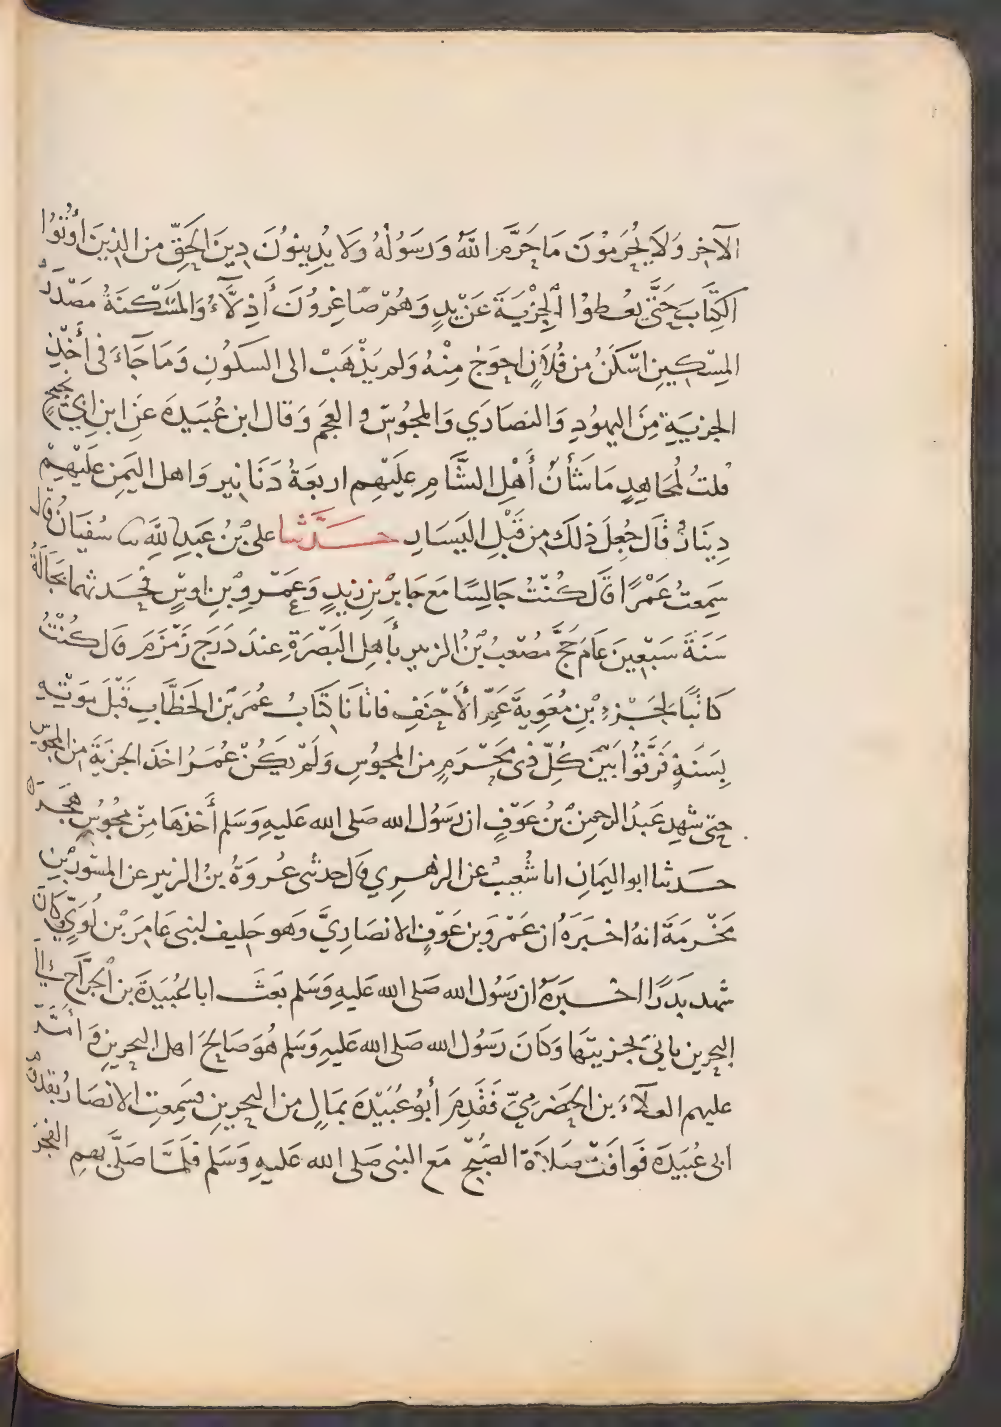 الآخِرِ وَلَا يُحَرِّمُونَ مَا حَرَّمَ اللهُ وَرَسُولُهُ وَلَا يَدِينُونَ دِينَ الحَقِّ مِنَ الذِينَ أُوتُوا
الكِتَابَ حَتَّى يُعْطُوا الجِزْيَةَ عَنْ يَدٍ وَهُمْ صَاغِرُونَ أَذِلَّاءُ وَالمَسْكَنَةُ مَصْدَرُ
المِسْكِينِ أَسْكَنُ مِنْ فُلَانٍ احوَجُ مِنْهُ وَلم يَذْهَبْ الى السكُونِ وَمَا جَاءَ فى أَخْذِ
الجزيَةِ مِنَ اليهُودِ وَالنصَارَي وَالمجُوسِ والعَجَمِ وَقال ابن عُيَيْنَةَ عَنِ ابنِ ابِي نَجِيحٍ
قلتُ لمُجَاهِدٍ مَا شَأنُ أَهْلِ الشَّامِ عَلَيْهِم اربَعَةُ دَنَانِير وَاهل اليَمنِ عَلَيْهِمْ
دِينَارٌ قَال جُعِلَ ذٰلِكَ مِن قِبَلِ اليَسَارِ حَدَّثنا علىُّ بْنُ عَبدِ اللهِ سا سُفيَانُ قَال
سَمِعتُ عَمْرًا قَال كُنْتُ جَالِسًا مَعَ جَابِرِ بْنِ زَيدٍ وَعَمْرِو بْنِ اوسٍ فَحَدثهُمَا بَجَالَةُ
سَنَةَ سَبْعِينَ عَامَ حَجَّ مُصْعَبُ بْنُ الزبيرِ بأَهلِ البَصْرَةِ عندَ دَرَجِ زَمْزَمَ قَال كُنْتُ
كَاتبًا لِجَزْءِ بْنِ مُعَوِيةَ عَمِّ الأَحْنَفِ فاتَانَا كِتَابُ عُمَرَ بْنِ الخَطَّابِ قَبْلَ مَوتهِ
بِسَنَةٍ فَرِّقُوا بَيْنَ كُلِّ ذِى مَحْرَمٍ من المجُوسِ وَلَمْ يَكُنْ عُمَرُ اخذَ الجزيَةَ مِن المجُوسِ
حتى شهِد عَبدُ الرحمنِ بْنُ عَوْفٍ ان رَسُول الله صَلى الله عَليهِ وَسَلم أَخذهَا مِنْ مجُوسِ هَجَرَ
حَدثنا ابو اليَمانِ انا شُعَيبٌ عن الزهرِي قال حدثنى عُروَةُ بنُ الزبيرِ عن المسْوَرِ بْنِ
مَخْرَمَةَ انهُ اخبَرَهُ ان عَمْرَو بن عَوْفٍ الانصَارِيَّ وَهو حَليف لبنى عَامِرِ بْنِ لُوَيٍّ وَكانَ
شهد بَدرًا اخبَرَهُ ان رَسُول الله صَلى الله عَليهِ وَسَلم بَعَثَ ابا عُبَيْدَةَ بن الجَرَّاحِ الى
البحرين ياتى بجزيتها وَكَانَ رَسُول الله صَلى الله عَليهِ وَسَلم هُوَ صَالَحَ اهل البحرينِ وَأَمَّرَ
عليهم العَلَآءَ بن الحضرَمِيِّ فَقَدِمَ أَبُو عُبَيْدَةَ بمَالٍ من البحرينِ فسَمِعتِ الانصَارُ بقدُومِ
ابى عُبَيدَةَ فَوَافَتْ صَلَاةَ الصُّبْحِ مَع النبى صَلى الله عَليهِ وَسَلم فَلَمَّا صَلَّى بهِمِ الفَجْرَ